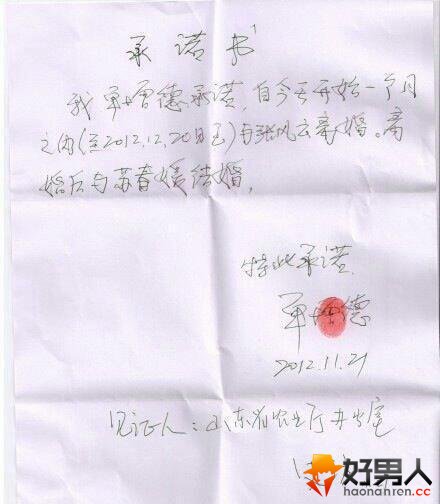 承诺书
我单增德承诺,自今天开始一个月
之内(至2012.12.20日至)与张风云离婚。离
婚后与苏春媛结婚。
特此承诺.
单增德
2012.11.21
见证人:山东省农业厅办公室
好男人
haonanren.cc